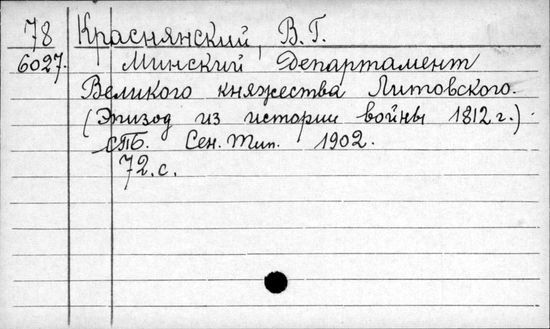 78 Краснянский, В. Г.
6027. Минский Департамент
Великого княжества Литовского.
(Эпизод из истории войны 1812 г.)
СПБ. Сен. Тип. 1902.
72. с.